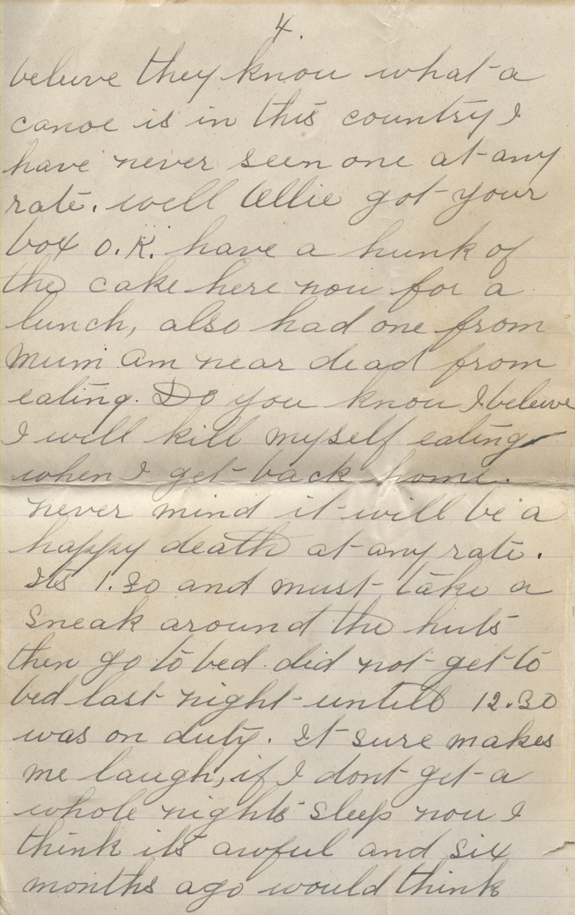 4.
beleive they know what a
canoe is in this country I
have never seen one at any
rate. well Ollie got your
box O.K. have a hunk of
the cake here now for a
lunch, also had one from
Mum am near dead from
eating. Do you know I beleive
I will kill myself eating
when I get back home.
never mind it will be a
happy death at any rate.
Its 1.30 and must take a
sneak around the huts
then go to bed. did not get to
bed last night untill 12.30
was on duty. It sure makes
me laugh, if I dont get a
whole nights sleep now I
think its awful and six
months ago would think